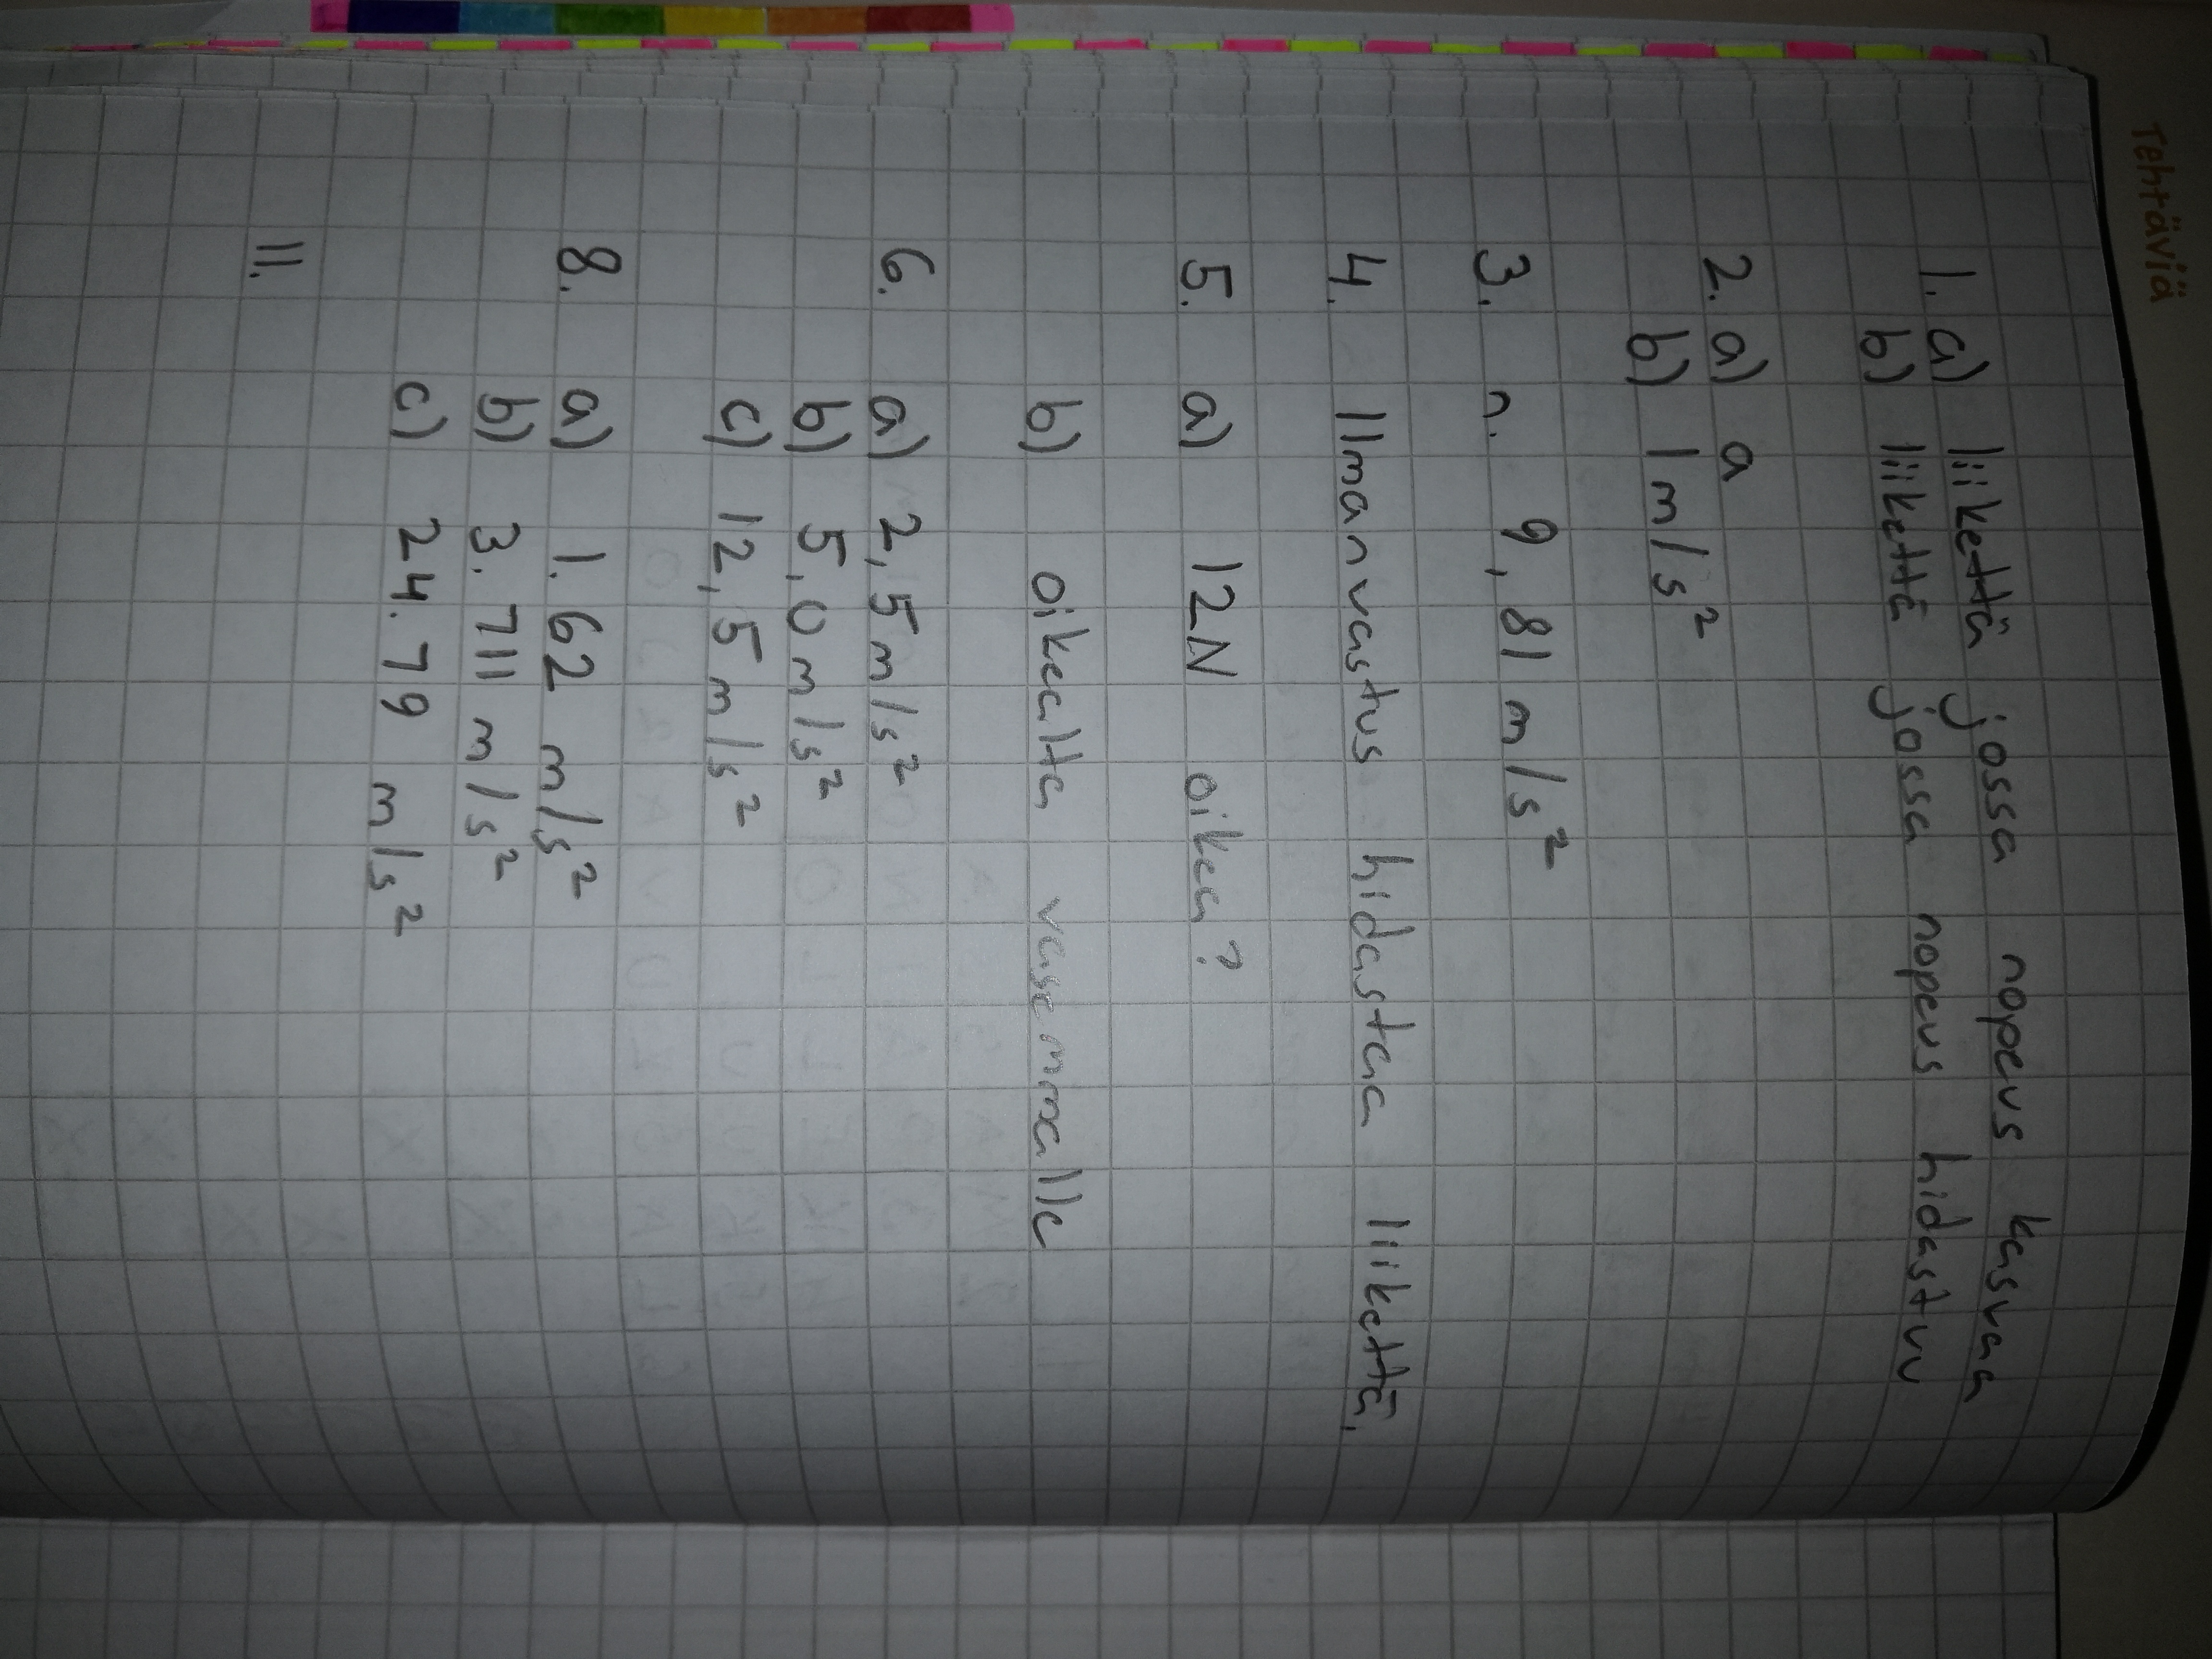 Tehtäviä
1. a) liikettä jossa nopeus kasvaa
b) liikettä jossa nopeus hidastuu
2. a) a
b) 1 m/s²
3. n. 9,81 m/s²
4. Ilmanvastus hidastaa liikettä.
5. a) 12N oikea?
b) oikealta vasemmalle
6. a) 2,5 m/s²
b) 5,0 m/s²
c) 12,5 m/s²
8. a) 1.62 m/s²
b) 3.711 m/s²
c) 24.79 m/s²
11.